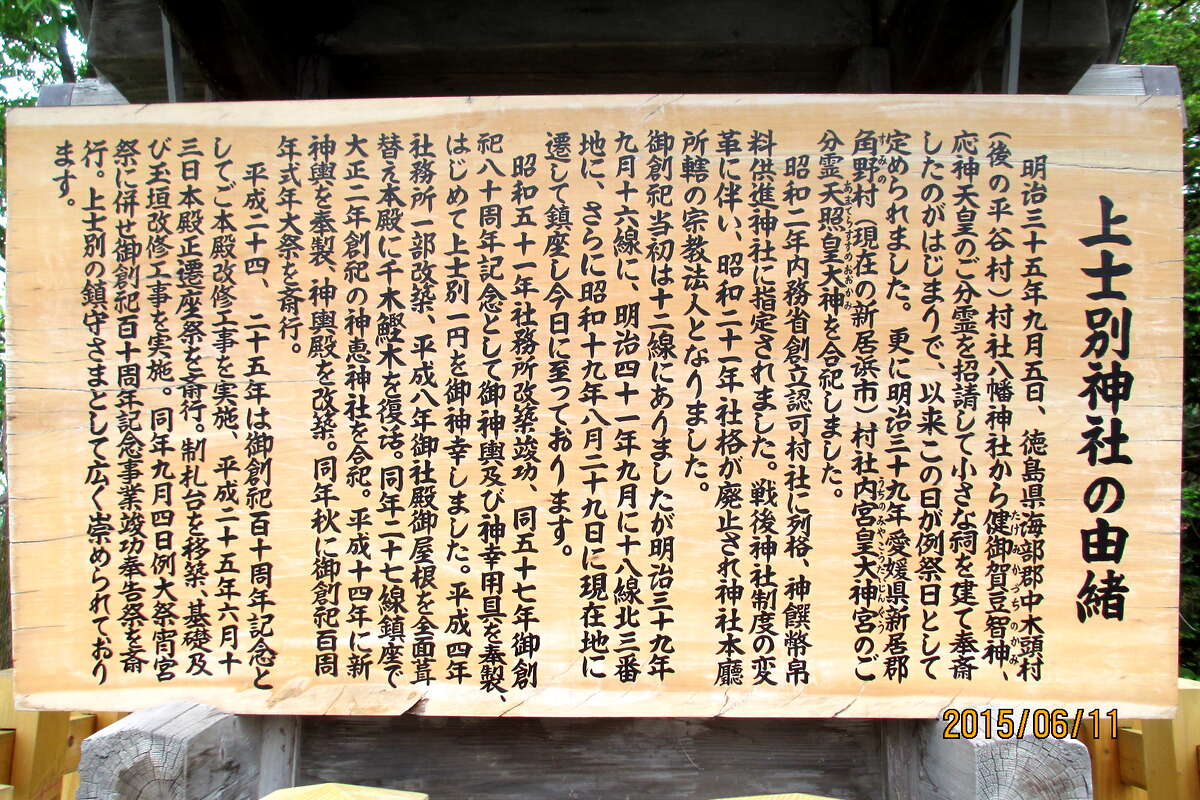 上士別神社の由緒
明治三十五年九月五日、徳島県海部郡中木頭村
(後の平谷村)村社八幡神社から健御賀豆智神、
たけみかづちのかみ
応神天皇のご分霊を招請して小さな祠を建て奉斎
したのがはじまりで、以来この日が例祭日として
定められました。更に明治三十九年愛媛県新居郡
角野村(現在の新居浜市)村社内宮皇大神宮のご
すみの
うちのみやこうたいじんぐう
分霊天照皇大神を合祀しました。
あまてらすすめおおかみ
昭和二年内務省創立認可村社に列格、神饌幣帛
料供進神社に指定されました。戦後神社制度の変
革に伴い、昭和二十一年社格が廃止され神社本廳
所轄の宗教法人となりました。
御創祀当初は十二線にありましたが明治三十九年
九月十六線に、明治四十一年九月に十八線北三番
地に、さらに昭和十九年八月二十九日に現在地に
遷して鎮座し今日に至っております。
昭和五十一年社務所改築竣功、同五十七年御創
祀八十周年記念として御神輿及び神幸用具を奉製、
はじめて上士別一円を御神幸しました。平成四年
社務所一部改築、平成八年御社殿御屋根を全面葺
替え本殿に千木鰹木を復活。同年二十七線鎮座で
大正二年創祀の神恵神社を合祀。平成十四年に新
神輿を奉製、神輿殿を改築。同年秋に御創祀百周
年式年大祭を斎行。
平成二十四、二十五年は御創祀百十周年記念と
してご本殿改修工事を実施、平成二十五年六月十
三日本殿正遷座祭を斎行。制札台を移築、基礎及
び玉垣改修工事を実施。同年九月四日例大祭宵宮
祭に併せ御創祀百十周年記念事業竣功奉告祭を斎
行。上士別の鎮守さまとして広く崇められており
ます。
2015/06/11